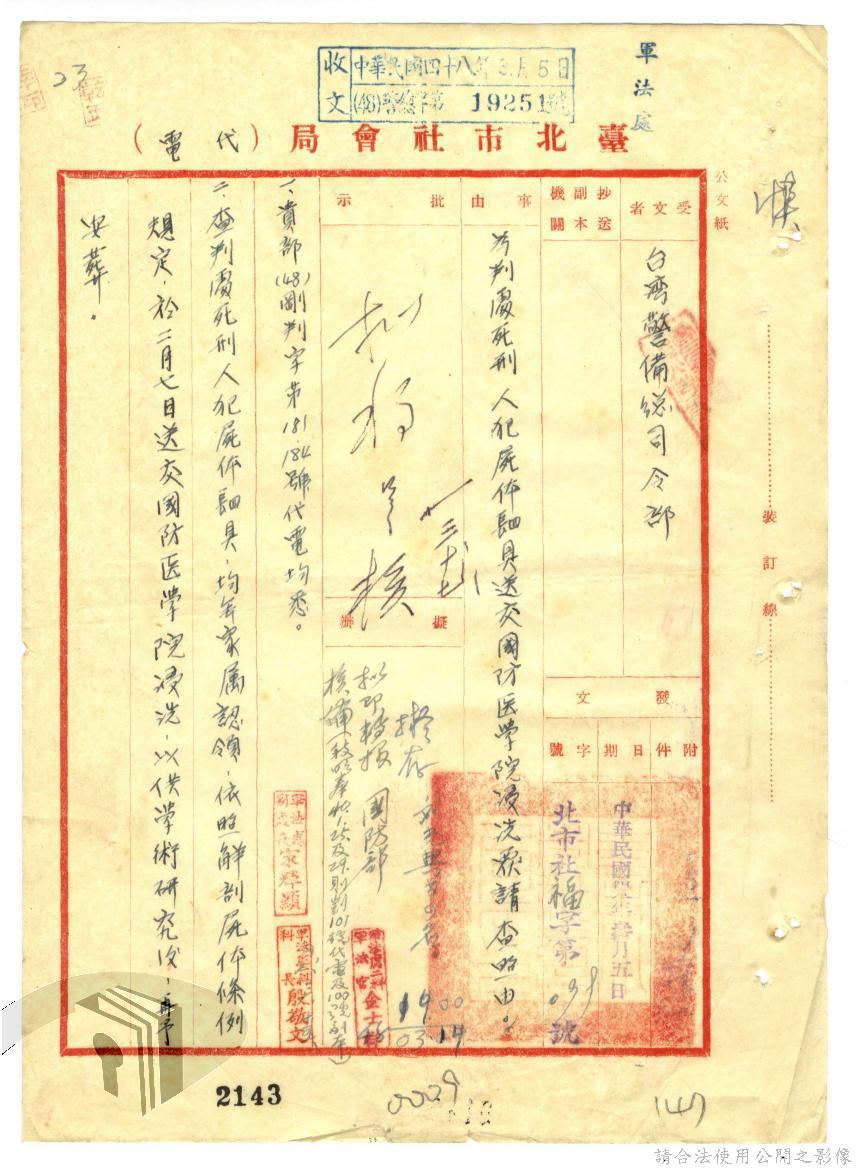 軍法處
收文
中華民國四十八年3月5日
(48)警總字第 19251號
臺北市社會局(代電)
公文紙
裝訂線
受文者
台湾警備総司令部
抄送副本機關
事由
為判處死刑人犯屍体四具送交國防医学院浸洗烝請查照由。
批示
擬辦
發文
附件
日期
字號
中華民國四八年叁月五日
北市社福字第
號
一、貴部(48)剛判字第181.184號代電均悉。
二、查判處死刑人犯屍体四具,均無家属認領,依照解剖屍体條例
規定,於二月七日送交國防医学院浸洗,以供学術研究後,再予
安葬。
擬存
拟即轉报 國防部
核備
軍法處副處長宋輝顯
軍法處科長殷敬文
軍法官
2143
0009
請合法使用公開之影像